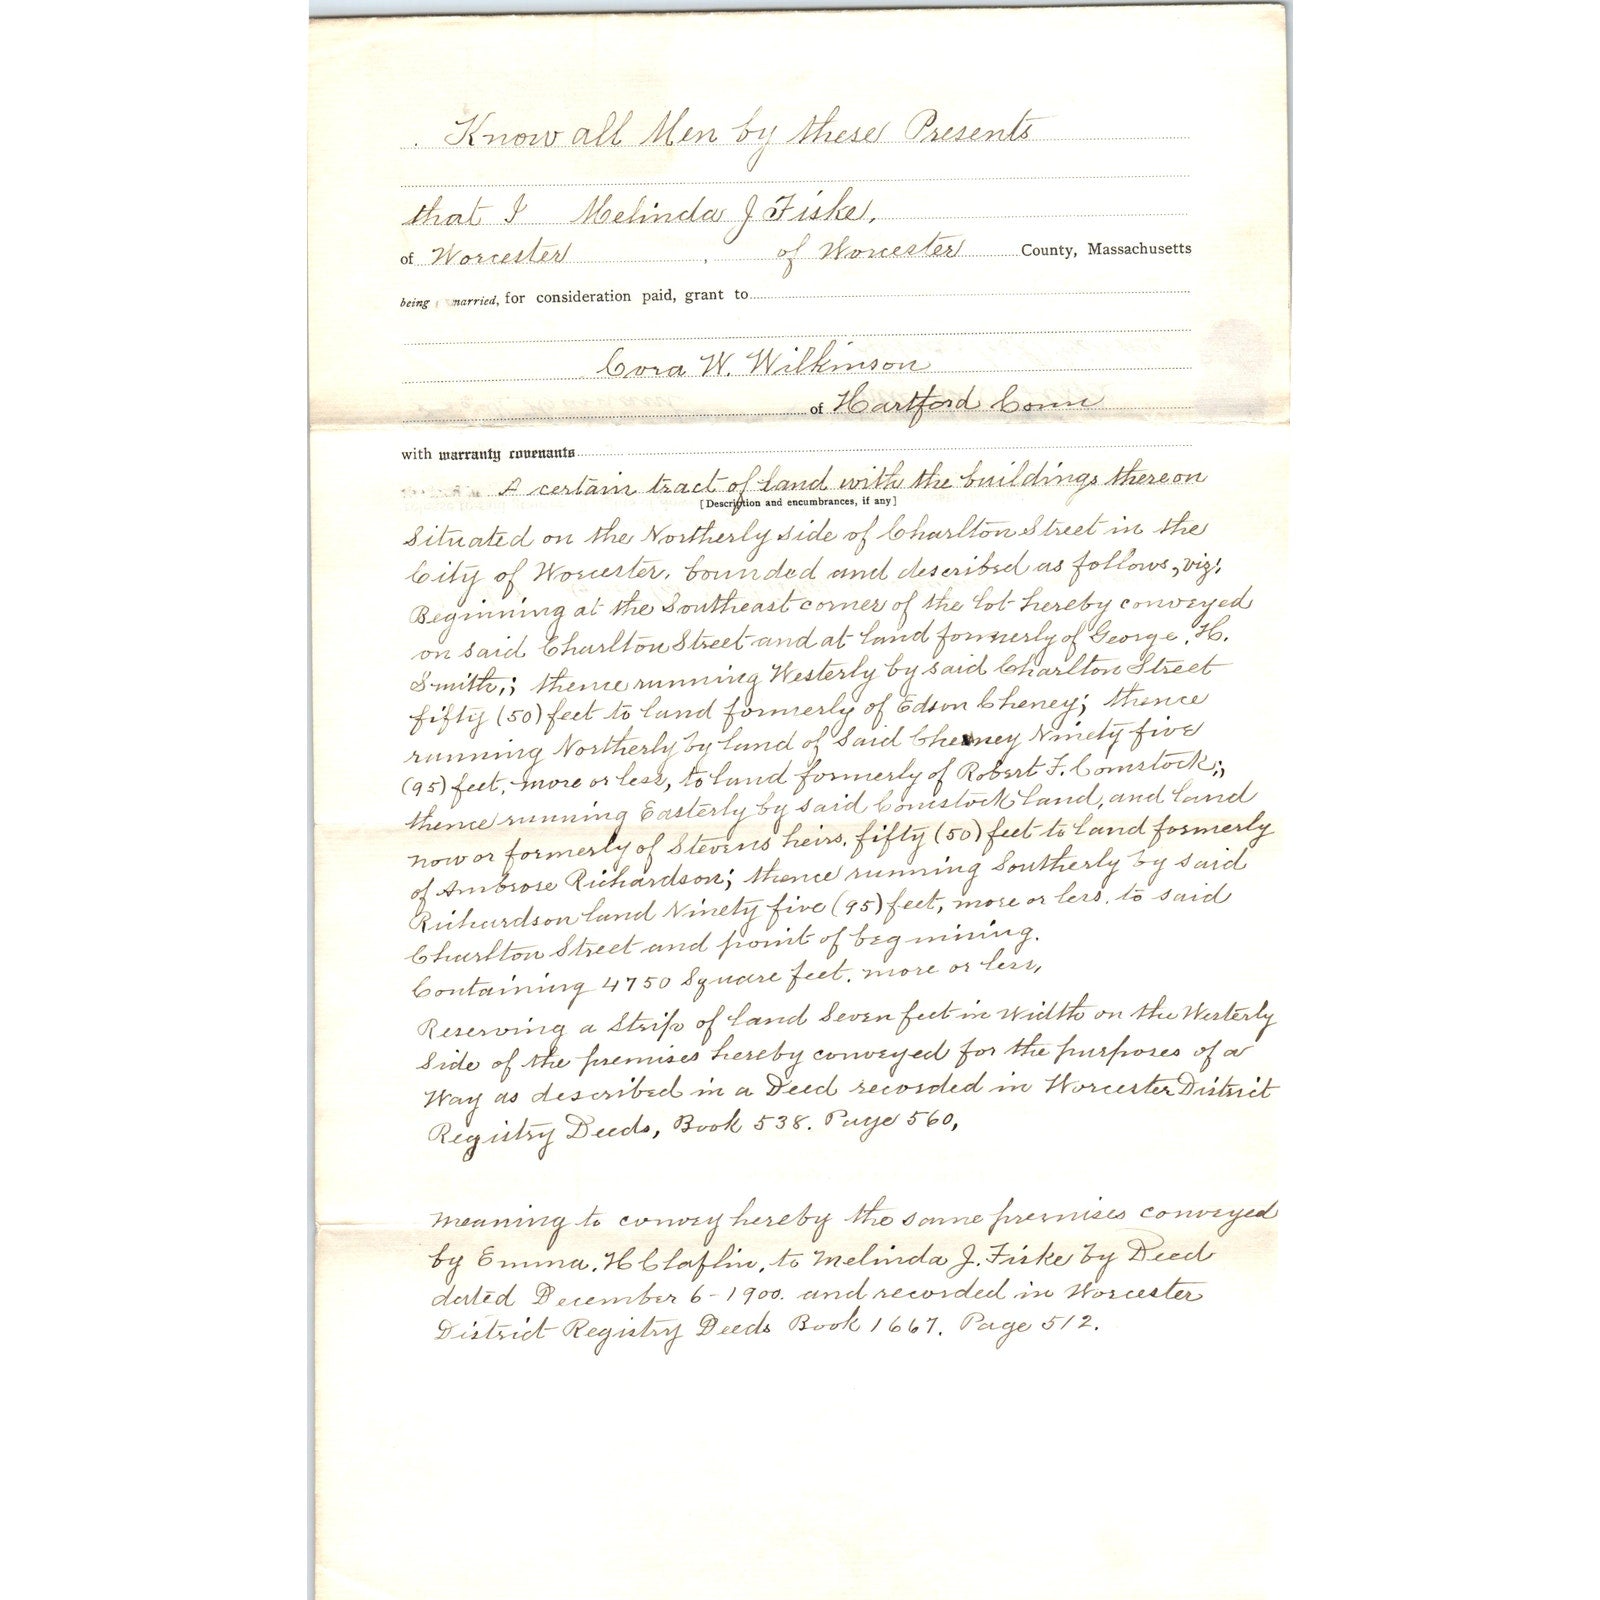 Know all Men by these Presents
that I Melinda J Fiske,
of Worcester, of Worcester County, Massachusetts
being married, for consideration paid, grant to
Cora W. Wilkinson
of Hartford Conn
with warranty covenants
A certain tract of land with the buildings thereon
[Description and encumbrances, if any]
Situated on the Northerly side of Charlton Street in the
City of Worcester, bounded and described as follows, viz:
Beginning at the Southeast corner of the lot hereby conveyed
on said Charlton Street and at land formerly of George. H.
Smith,; thence running Westerly by said Charlton Street
fifty (50) feet to land formerly of Edson Cheney; thence
running Northerly by land of Said Cheney Ninety five
(95) feet, more or less, to land formerly of Robert F. Comstock;,
thence running Easterly by said Comstock land, and land
now or formerly of Stevens heirs, fifty (50) feet to land formerly
of Ambrose Richardson; thence running Southerly by said
Richardson land Ninety five (95) feet, more or less, to said
Charlton Street and point of beginning.
Containing 4750 Square feet, more or less,
Reserving a Strip of land Seven feet in Width on the Westerly
Side of the premises hereby conveyed for the purposes of a
Way as described in a Deed recorded in Worcester District
Registry Deeds, Book 538. Page 560,
meaning to convey hereby the same premises conveyed
by Emma. H Claflin, to Melinda J. Fiske by Deed
dated December 6-1900. and recorded in Worcester
District Registry Deeds Book 1667. Page 512.